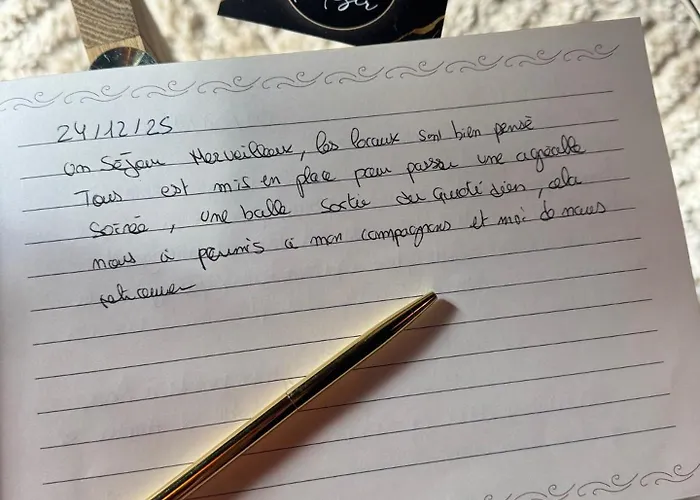 24/12/25
un Séjour Merveilleux, les locaux sont bien pensé
Tous est mis en place pour passer une agréable
soirée, une belle sortie du quotidien, cela
nous à permis à mon compagnons et moi de nous
retrouver